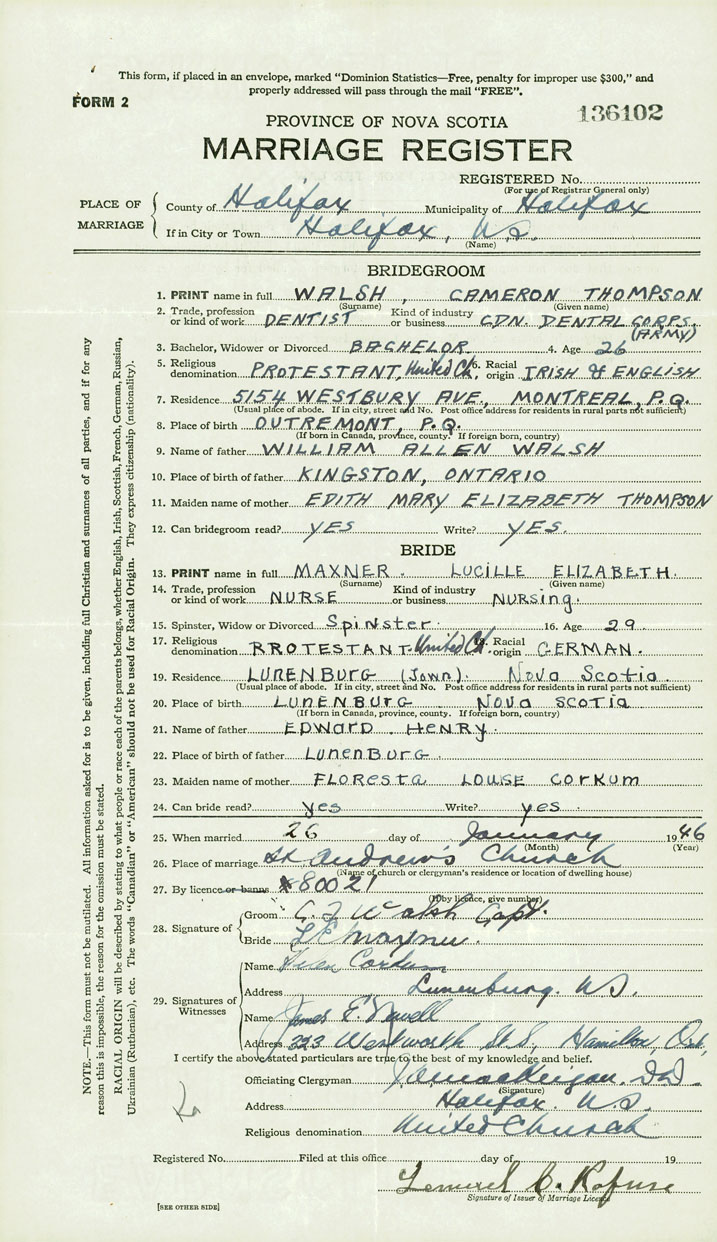 This form, if placed in an envelope, marked “Dominion Statistics—Free, penalty for improper use $300,” and
properly addressed will pass through the mail “FREE”.
FORM 2
136102
PROVINCE OF NOVA SCOTIA
MARRIAGE REGISTER
REGISTERED No.
(For use of Registrar General only)
PLACE OF MARRIAGE
County of Halifax Municipality of Halifax
If in City or Town Halifax, N.S.
(Name)
BRIDEGROOM
1. PRINT name in full WALSH, CAMERON THOMPSON
(Surname) (Given name)
2. Trade, profession or kind of work DENTIST Kind of industry or business CDN. DENTAL CORPS. (ARMY)
3. Bachelor, Widower or Divorced BACHELOR 4. Age 26
5. Religious denomination PROTESTANT, United Ch. 6. Racial origin IRISH & ENGLISH
7. Residence 5154 WESTBURY AVE., MONTREAL, P.Q.
(Usual place of abode. If in city, street and No. Post office address for residents in rural parts not sufficient)
8. Place of birth OUTREMONT, P.Q.
(If born in Canada, province, county. If foreign born, country)
9. Name of father WILLIAM ALLEN WALSH
10. Place of birth of father KINGSTON, ONTARIO
11. Maiden name of mother EDITH MARY ELIZABETH THOMPSON
12. Can bridegroom read? YES Write? YES.
BRIDE
13. PRINT name in full MAXNER. LUCILLE ELIZABETH.
(Surname) (Given name)
14. Trade, profession or kind of work NURSE Kind of industry or business NURSing.
15. Spinster, Widow or Divorced Spinster. 16. Age 29
17. Religious denomination PROTESTANT. United Ch. 18. Racial origin GERMAN.
19. Residence LUNENBURG (Town). NOVA Scotia.
(Usual place of abode. If in city, street and No. Post office address for residents in rural parts not sufficient)
20. Place of birth LUNENBURG NOVA SCOTIA
(If born in Canada, province, county. If foreign born, country)
21. Name of father EDWARD HENRY.
22. Place of birth of father LUNENBURG.
23. Maiden name of mother FLORESTA LOUISE CORKUM
24. Can bride read? yes Write? yes.
25. When married 26 day of January 1946
(Month) (Year)
26. Place of marriage St. Andrew's Church
(Name of church or clergyman's residence or location of dwelling house)
27. By licence or banns 80021
(If by licence, give number)
28. Signature of
Groom C. T. Walsh Capt.
Bride L E Maxner.
29. Signatures of Witnesses
Name Corkum
Address Lunenburg. N.S.
Name James E. Newell
Address 323 Wentworth St. S., Hamilton, Ont.
I certify the above stated particulars are true to the best of my knowledge and belief.
Officiating Clergyman D.D.
(Signature)
Address Halifax. N.S.
Religious denomination United Church
Registered No. Filed at this office day of 19
Lemuel C. Rafuse
Signature of Issuer of Marriage Licence
[SEE OTHER SIDE]
NOTE.—This form must not be mutilated. All information asked for is to be given, including full Christian and surnames of all parties, and if for any
reason this is impossible, the reason for the omission must be stated.
RACIAL ORIGIN will be described by stating to what people or race each of the parents belongs, whether English, Irish, Scottish, French, German, Russian,
Ukrainian (Ruthenian), etc. The words “Canadian” or “American” should not be used for Racial Origin. They express citizenship (nationality).